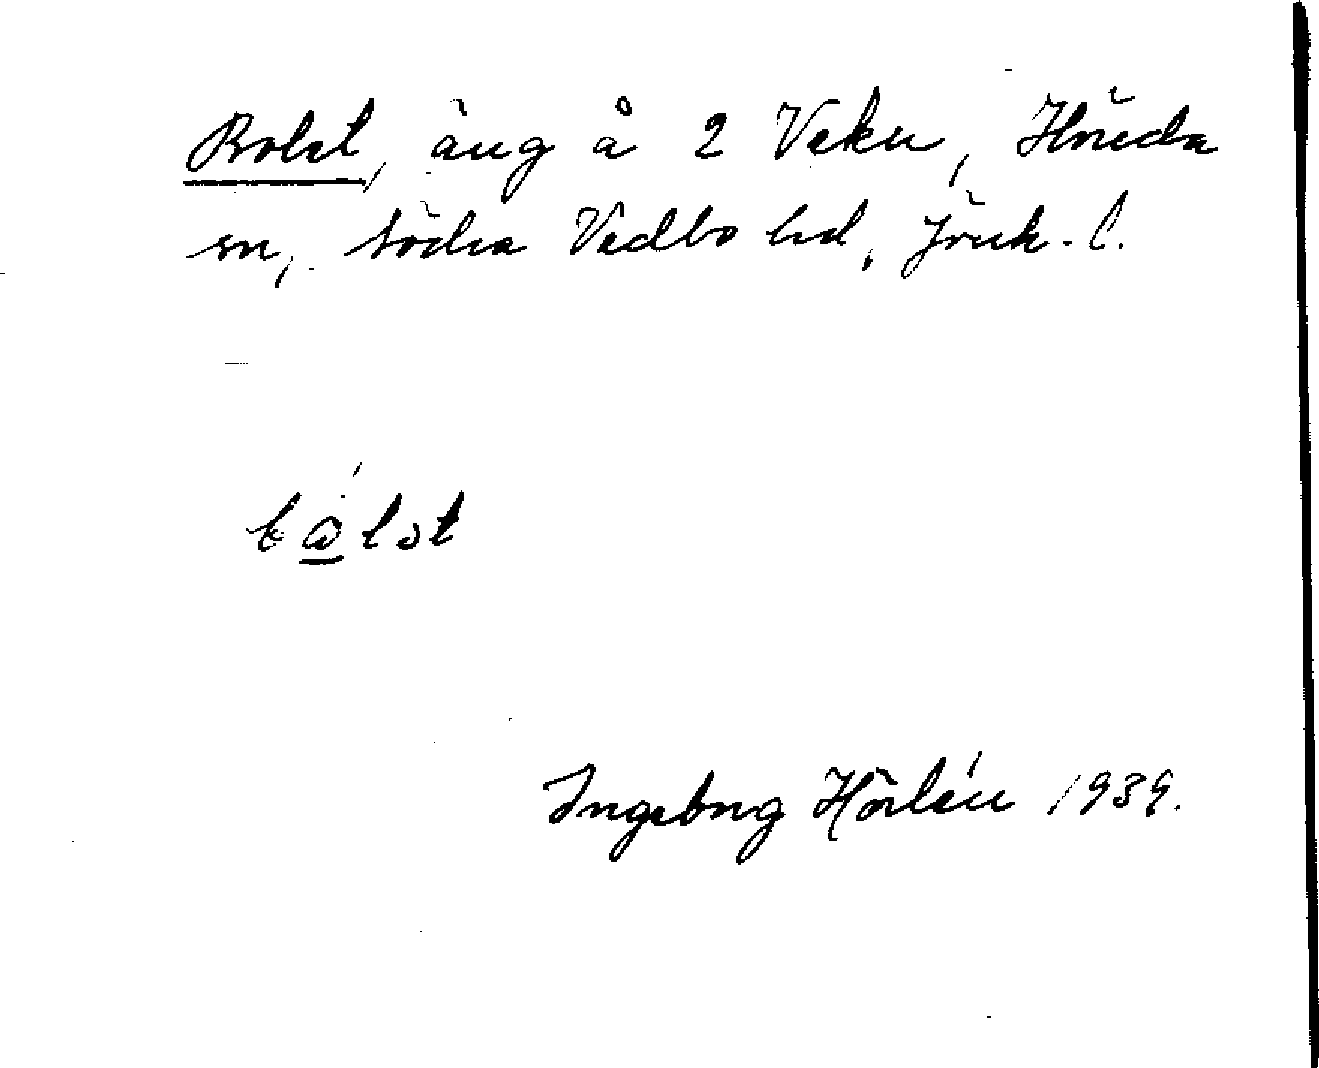 Bolet, äng å 2 Veku, Höreda
sn, Södra Vedbo hd, Jönk. l.
bålət
Ingeborg Hörlén 1939.